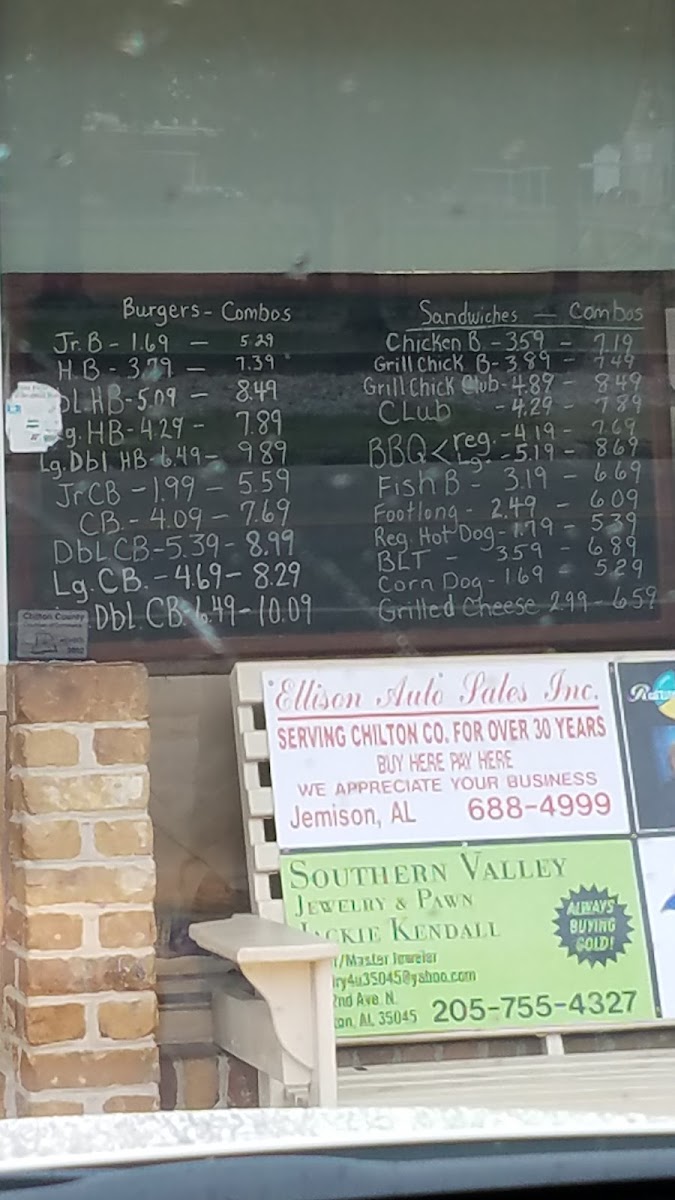 Burgers - Combos
Jr. B - 1.69 - 5.29
H.B - 3.79 - 7.39
bL.HB - 5.09 - 8.49
g. HB - 4.29 - 7.89
Lg. Dbl HB - 6.49 - 9.89
Jr CB - 1.99 - 5.59
CB. - 4.09 - 7.69
DbL CB - 5.39 - 8.99
Lg. CB. - 4.69 - 8.29
Dbl. CB. 6.49 - 10.09
Sandwiches - Combos
Chicken B - 3.59 - 7.19
Grill Chick B - 3.89 - 7.49
Grill Chick Club - 4.89 - 8.49
CLub - 4.29 - 7.89
BBQ < reg. - 4.19 - 7.69
Lg. - 5.19 - 8.69
Fish B - 3.19 - 6.69
Footlong - 2.49 - 6.09
Reg. Hot Dog - 1.79 - 5.39
BLT - 3.59 - 6.89
Corn Dog - 1.69 - 5.29
Grilled Cheese 2.99 - 6.59
Chilton County
Ellison Auto Sales Inc.
SERVING CHILTON CO. FOR OVER 30 YEARS
BUY HERE PAY HERE
WE APPRECIATE YOUR BUSINESS
Jemison, AL 688-4999
SOUTHERN VALLEY
JEWELRY & PAWN
JACKIE KENDALL
r/Master Jeweler
ry4u35045@yahoo.com
2nd Ave. N.
on, AL 35045 205-755-4327
ALWAYS
BUYING
GOLD!